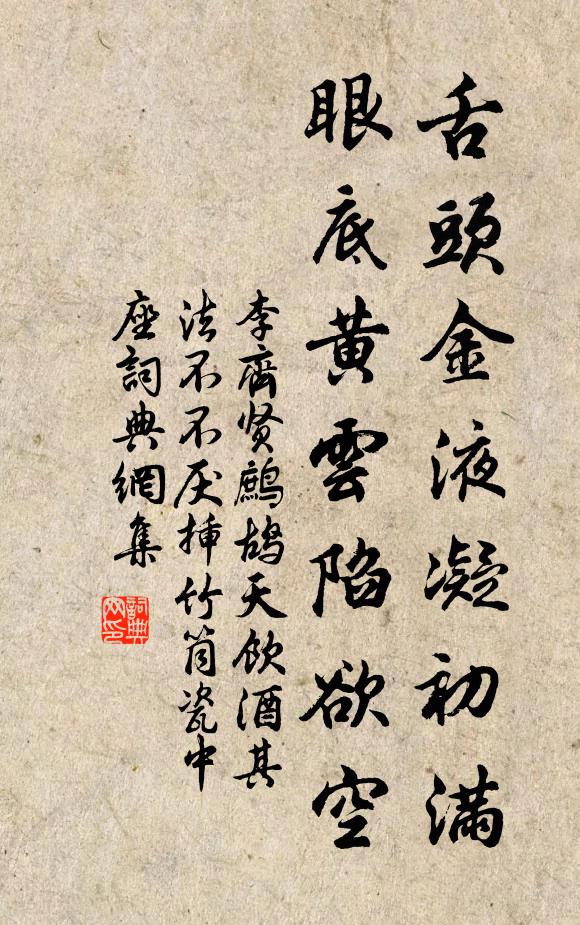 舌頭金液凝初滿
眼底黃雲陷欲空
李齊贤鷓鴣天飲酒其
法不不厌揷竹筒瓷中
座詞典網集
詞典
网印